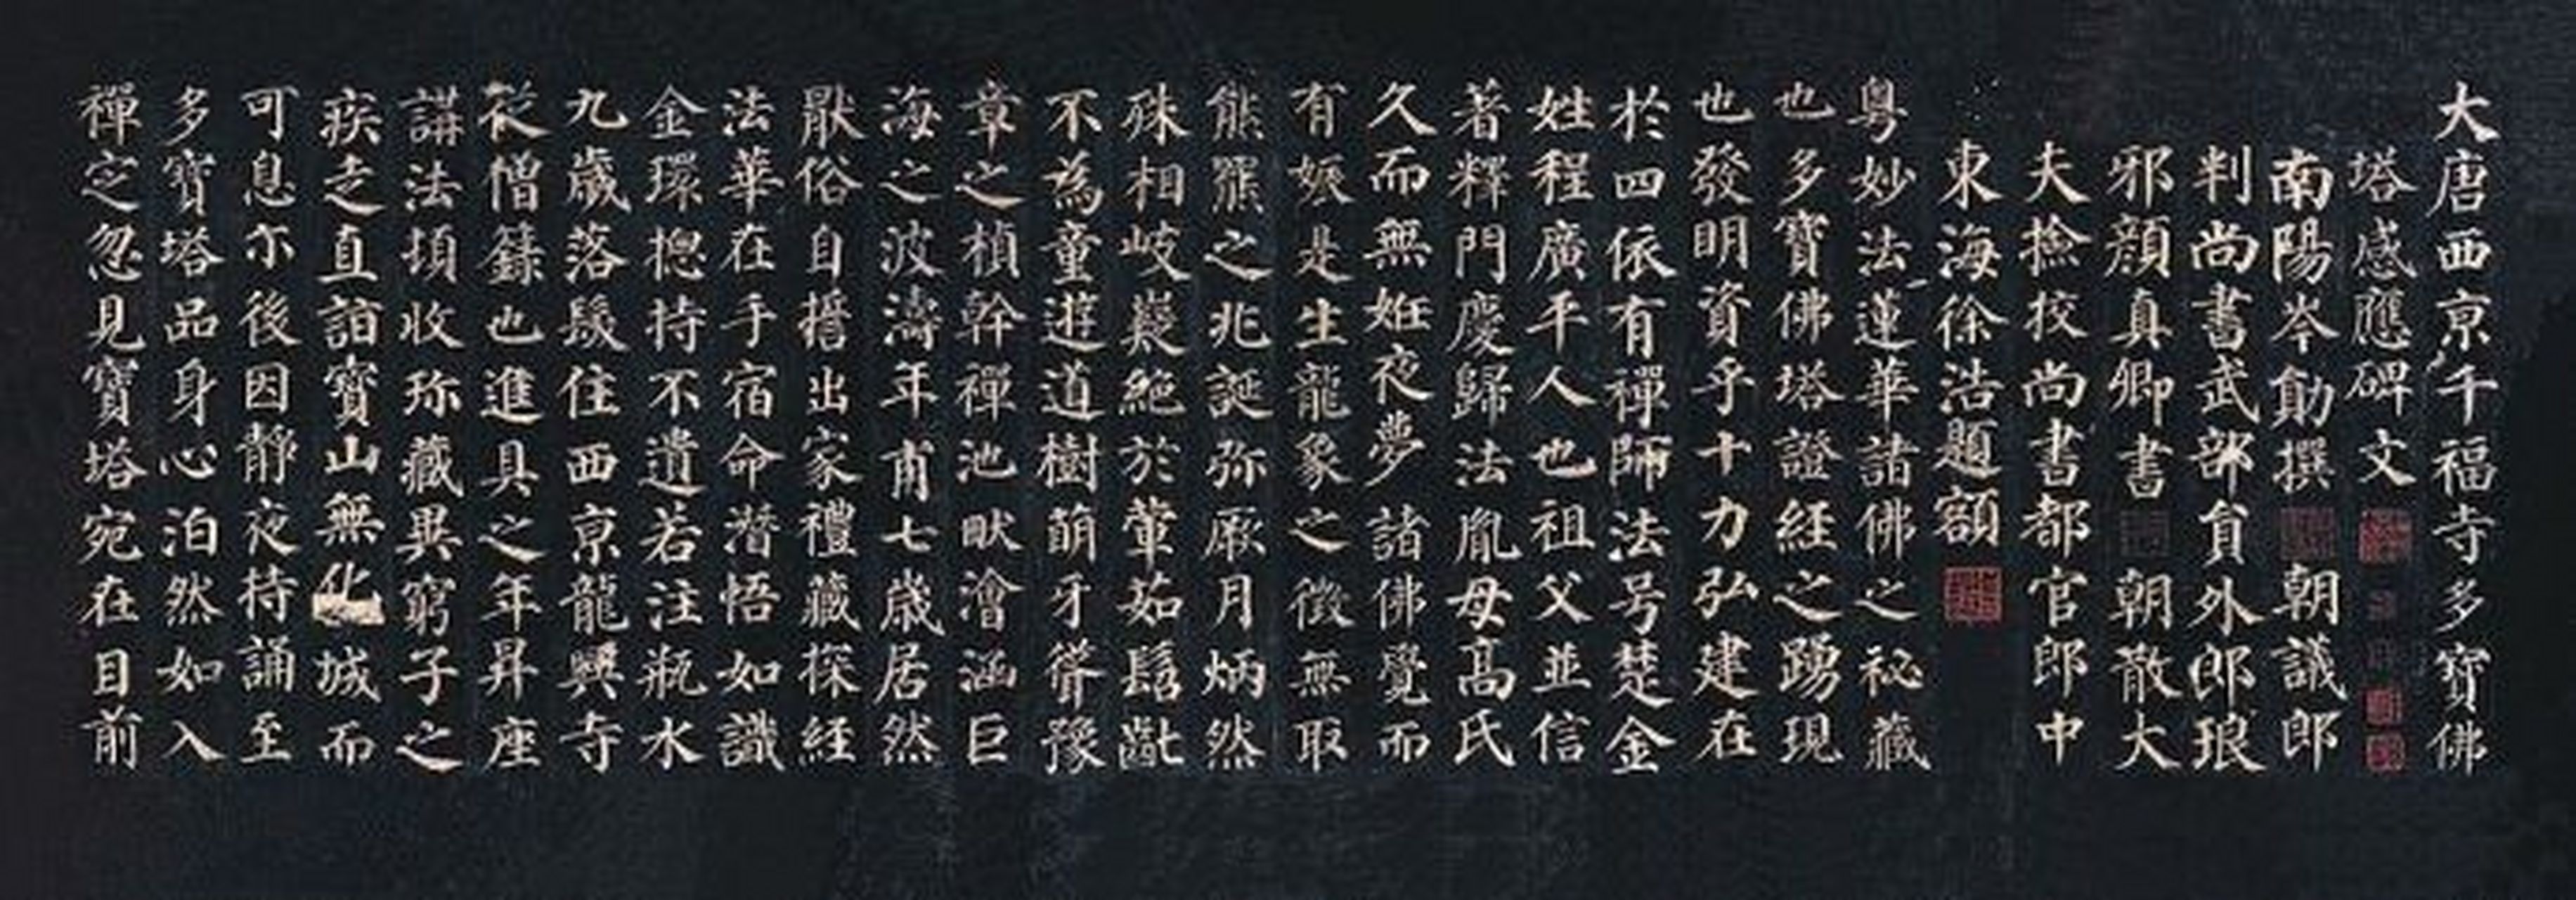 大唐西京千福寺多寶佛
塔感應碑文
南陽岑勛撰 朝議郎
判尚書武部員外郎琅
邪顏真卿書 朝散大
夫撿挍尚書都官郎中
東海徐浩題額
粵妙法蓮華諸佛之祕藏
也多寶佛塔證経之踴現
也發明資乎十力弘建在
於四依有禪師法号楚金
姓程廣平人也祖父並信
著釋門慶歸法胤母高氏
久而無姙夜夢諸佛覺而
有娠是生龍象之徵無取
熊羆之兆誕弥厥月炳然
殊相岐嶷絕於葷茹髫齔
不為童遊道樹萌牙聳豫
章之楨幹禪池畎澮涵巨
海之波濤年甫七歲居然
猒俗自誓出家禮藏探経
法華在手宿命潛悟如識
金環揔持不遺若注瓶水
九歲落髮住西京龍興寺
從僧籙也進具之年昇座
講法頃收珎藏異窮子之
疾走直詣寶山無化城而
可息尒後因靜夜持誦至
多寶塔品身心泊然如入
禪定忽見寶塔宛在目前